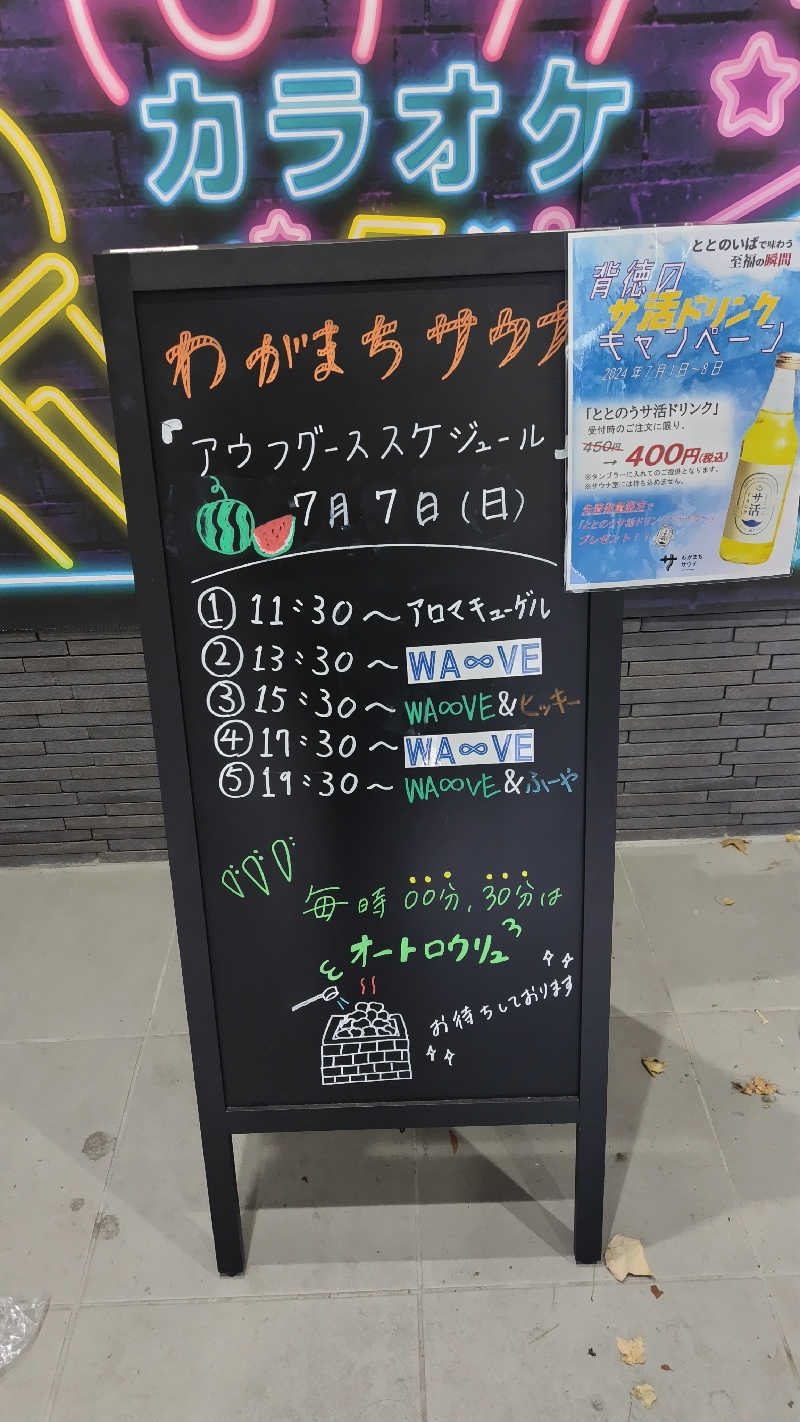 カラオケ
わがまちサウナ
アウフグーススケジュール
7月7日(日)
① 11:30〜アロマキューゲル
② 13:30〜WA∞VE
③ 15:30〜WA∞VE&ヒッキー
④ 17:30〜WA∞VE
⑤ 19:30〜WA∞VE&ふーや
毎時00分、30分は
オートロウリュ
お待ちしております
ととのいばで味わう
至福の瞬間
背徳の
サ活ドリンク
キャンペーン
2024年7月1日〜8日
「ととのうサ活ドリンク」
受付時のご注文に限り、
450円
→ 400円(税込)
※タンブラーに入れてのご提供となります。
※サウナ室には持ち込めません。
「ととのうサ活ドリンク
プレゼント!!
サ活
サ わがまち
サウナ